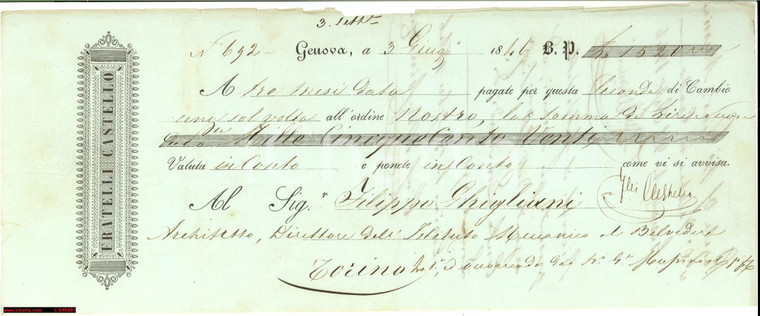 3. Sett.e
N° 692 Genova, a 3 Giug.° 1846 B. P. £ 1520
A tre mesi data pagate per questa Seconda di Cambio
una sol volta all'ordine Nostro, la somma di Lire nuove
Mille Cinque Cento Venti
Valuta in Conto e ponete in Conto come vi si avvisa.
Al Sig.r Filippo Ghigliani
Architetto, Direttore dell' Istituto Meccanico di Belvedere
Torino
FRATELLI CASTELLO